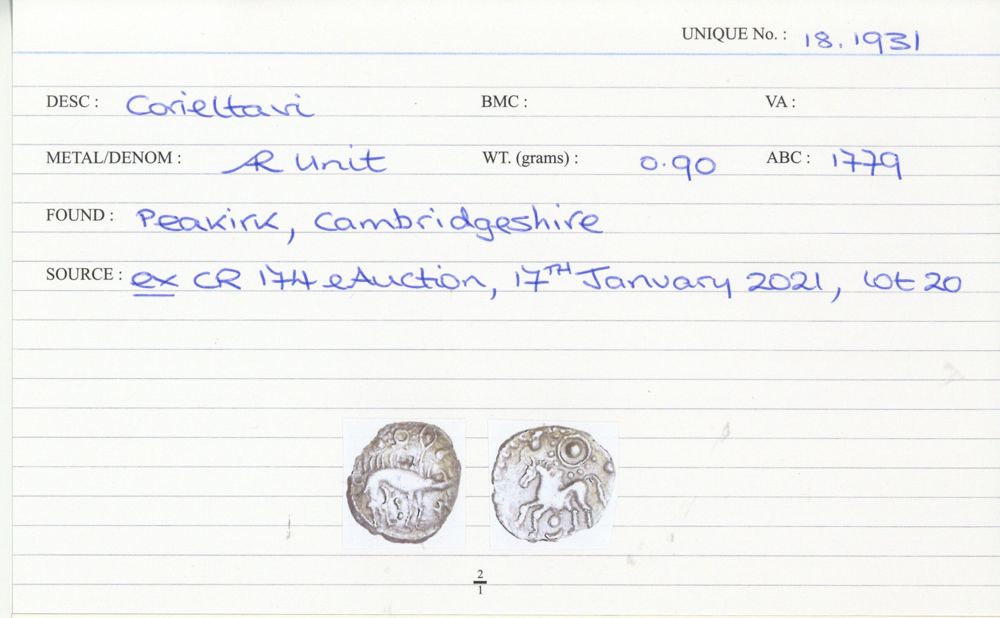 UNIQUE No. : 18.1931
DESC : Corieltavi BMC : VA :
METAL/DENOM : AR Unit WT. (grams) : 0.90 ABC : 1779
FOUND : Peakirk, Cambridgeshire
SOURCE : ex CR 174 eAuction, 17TH January 2021, lot 20
2
1